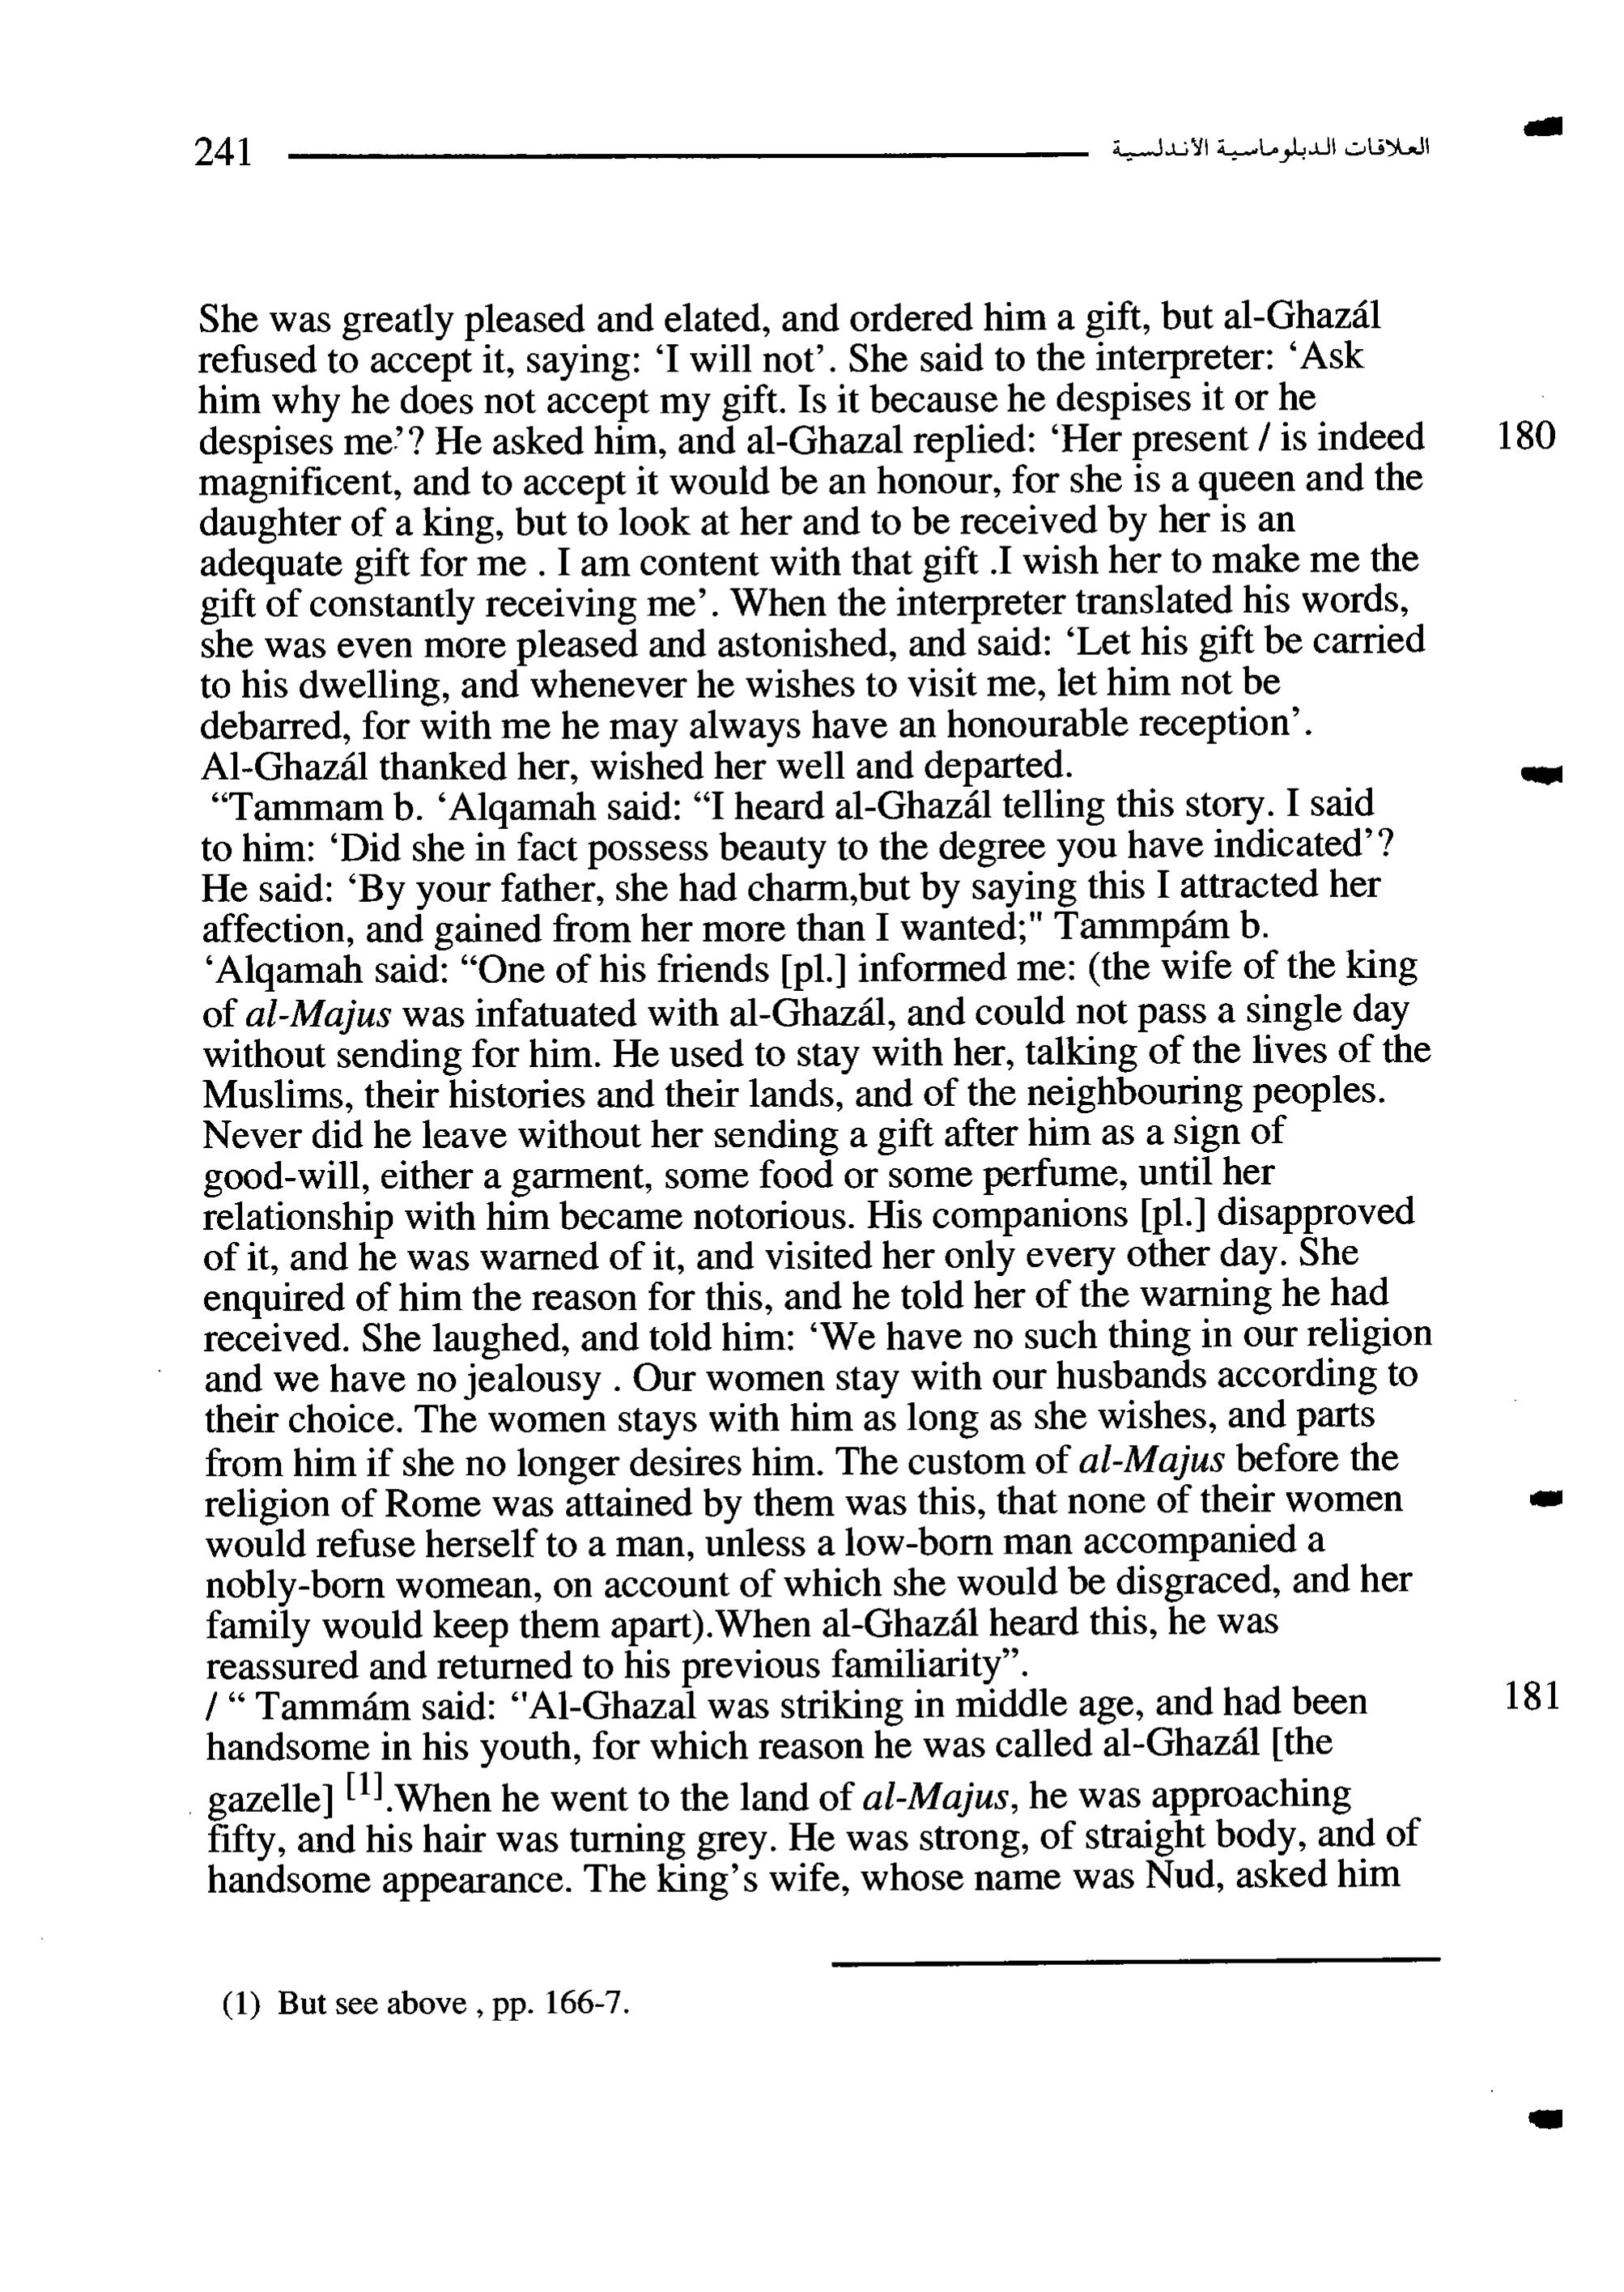 241 العلاقات الدبلوماسية الأندلسية
She was greatly pleased and elated, and ordered him a gift, but al-Ghazál
refused to accept it, saying: ‘I will not’. She said to the interpreter: ‘Ask
him why he does not accept my gift. Is it because he despises it or he
despises me’? He asked him, and al-Ghazal replied: ‘Her present / is indeed 180
magnificent, and to accept it would be an honour, for she is a queen and the
daughter of a king, but to look at her and to be received by her is an
adequate gift for me . I am content with that gift .I wish her to make me the
gift of constantly receiving me’. When the interpreter translated his words,
she was even more pleased and astonished, and said: ‘Let his gift be carried
to his dwelling, and whenever he wishes to visit me, let him not be
debarred, for with me he may always have an honourable reception’.
Al-Ghazál thanked her, wished her well and departed.
“Tammam b. ‘Alqamah said: “I heard al-Ghazál telling this story. I said
to him: ‘Did she in fact possess beauty to the degree you have indicated’?
He said: ‘By your father, she had charm,but by saying this I attracted her
affection, and gained from her more than I wanted;" Tammpám b.
‘Alqamah said: “One of his friends [pl.] informed me: (the wife of the king
of al-Majus was infatuated with al-Ghazál, and could not pass a single day
without sending for him. He used to stay with her, talking of the lives of the
Muslims, their histories and their lands, and of the neighbouring peoples.
Never did he leave without her sending a gift after him as a sign of
good-will, either a garment, some food or some perfume, until her
relationship with him became notorious. His companions [pl.] disapproved
of it, and he was warned of it, and visited her only every other day. She
enquired of him the reason for this, and he told her of the warning he had
received. She laughed, and told him: ‘We have no such thing in our religion
and we have no jealousy . Our women stay with our husbands according to
their choice. The women stays with him as long as she wishes, and parts
from him if she no longer desires him. The custom of al-Majus before the
religion of Rome was attained by them was this, that none of their women
would refuse herself to a man, unless a low-born man accompanied a
nobly-born womean, on account of which she would be disgraced, and her
family would keep them apart).When al-Ghazál heard this, he was
reassured and returned to his previous familiarity”.
/ “ Tammám said: “'Al-Ghazal was striking in middle age, and had been 181
handsome in his youth, for which reason he was called al-Ghazál [the
gazelle] [1].When he went to the land of al-Majus, he was approaching
fifty, and his hair was turning grey. He was strong, of straight body, and of
handsome appearance. The king’s wife, whose name was Nud, asked him
(1) But see above , pp. 166-7.